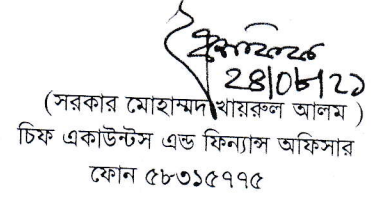 ২৪/০৮/২১
(সরকার মোহাম্মদ খায়রুল আলম )
চিফ একাউন্টস এন্ড ফিন্যান্স অফিসার
ফোন ৫৮৩১৫৭৭৫